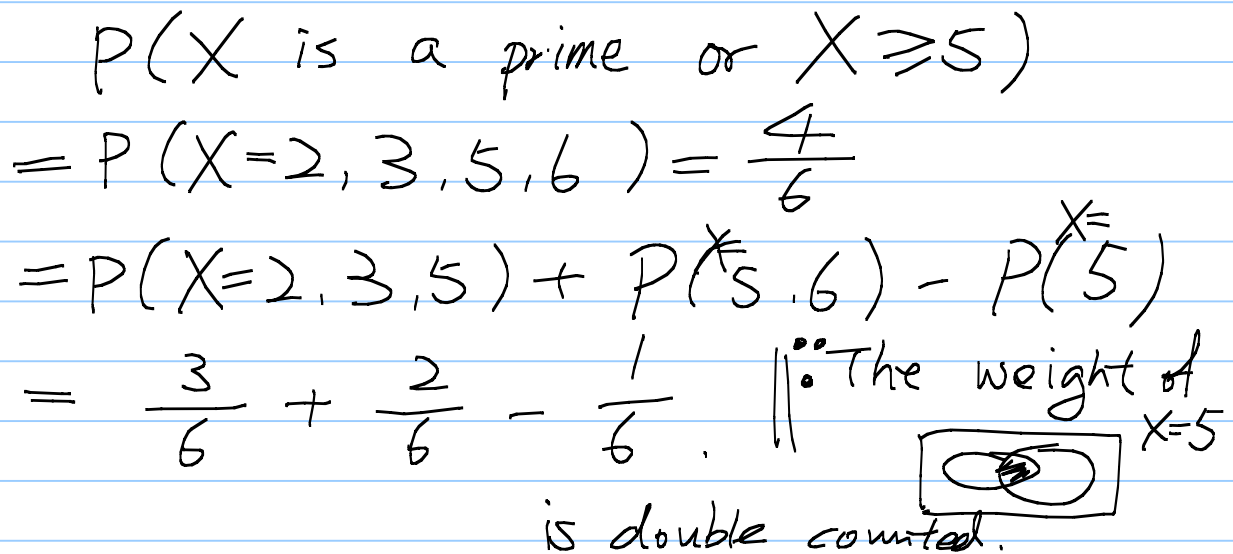 P(X is a prime or X⩾5)
= P(X=2, 3, 5, 6) = 4/6
= P(X=2, 3, 5) + P(X=5, 6) - P(X=5)
= 3/6 + 2/6 - 1/6. ∵ The weight of X=5
is double counted.